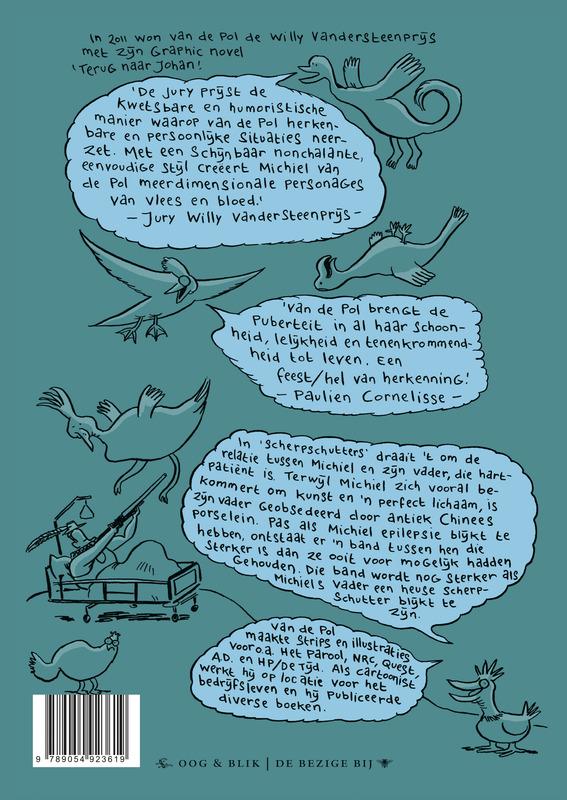 In 2011 won van de Pol de Willy Vandersteenprijs
met zijn Graphic novel
'Terug naar Johan'.
'De jury prijst de
kwetsbare en humoristische
manier waarop van de Pol herken-
bare en persoonlijke situaties neer-
zet. Met een schijnbaar nonchalante,
eenvoudige stijl creëert Michiel van
de Pol meerdimensionale personages
van vlees en bloed.'
- Jury Willy Vandersteenprijs -
'Van de Pol brengt de
puberteit in al haar schoon-
heid, lelijkheid en tenenkrommend-
heid tot leven. Een
feest/hel van herkenning.'
- Paulien Cornelisse -
In 'Scherpschutters' draait 't om de
relatie tussen Michiel en zijn vader, die hart-
patiënt is. Terwijl Michiel zich vooral be-
kommert om kunst en 'n perfect lichaam, is
zijn vader geobsedeerd door antiek Chinees
porselein. Pas als Michiel epilepsie blijkt te
hebben, ontstaat er 'n band tussen hen die
sterker is dan ze ooit voor mogelijk hadden
gehouden. Die band wordt nog sterker als
Michiels vader een heuse scherp-
schutter blijkt te
zijn.
Van de Pol
maakte strips en illustraties
voor o.a. Het Parool, NRC, Quest,
A.D. en HP/De Tijd. Als cartoonist
werkt hij op locatie voor het
bedrijfsleven en hij publiceerde
diverse boeken.
9 789054 923619
OOG & BLIK | DE BEZIGE BIJ